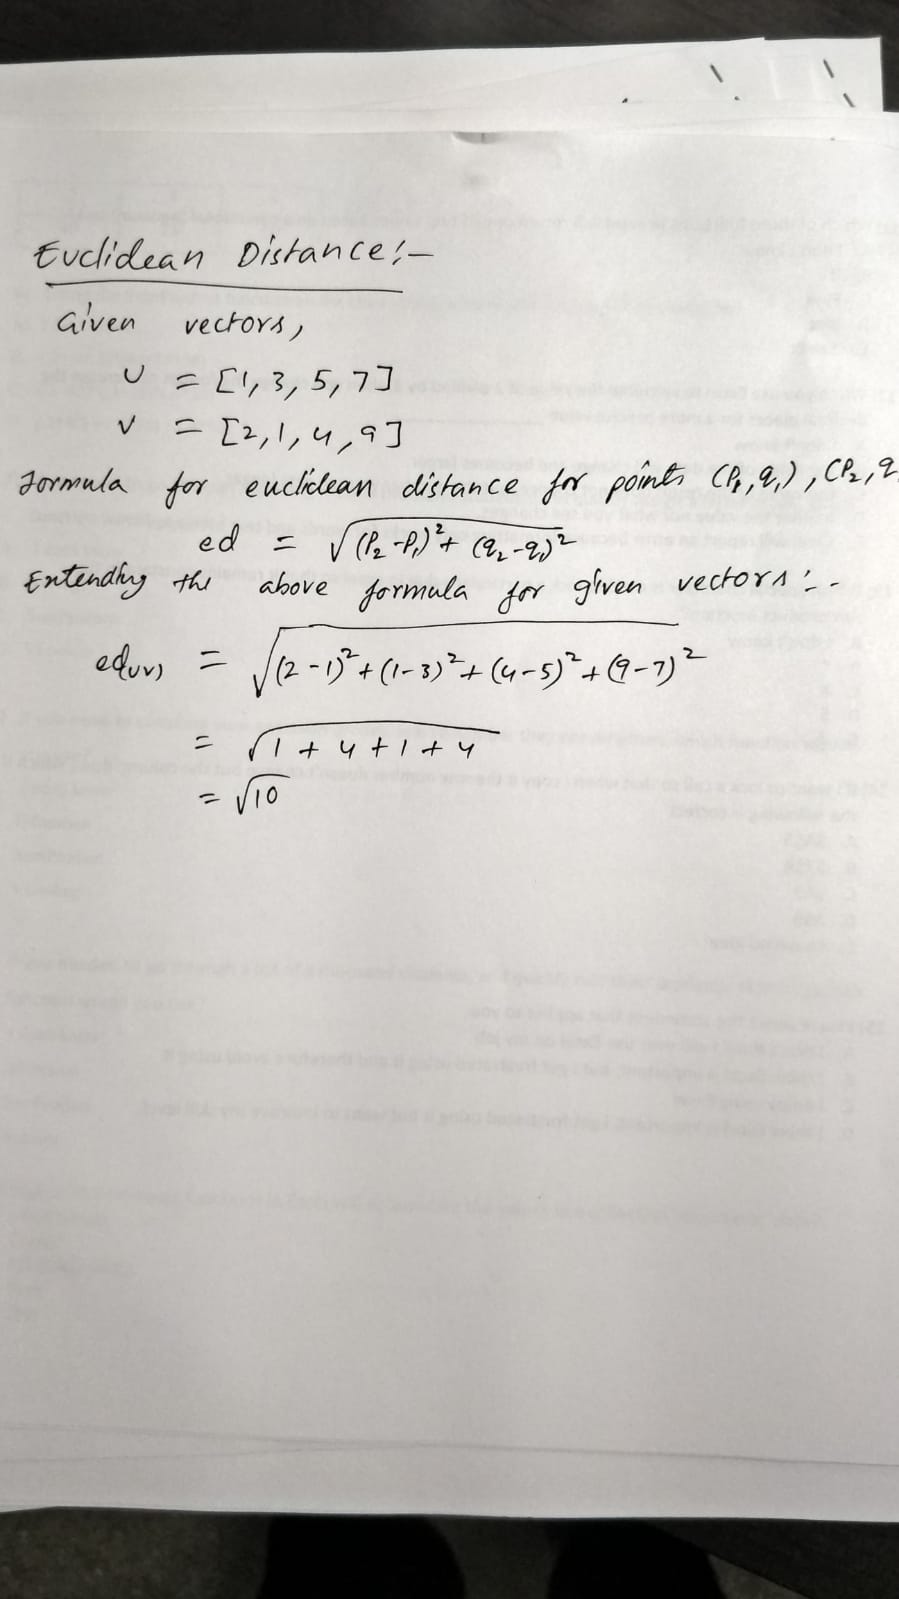 Euclidean Distance:-
Given vectors,
U = [1, 3, 5, 7]
V = [2, 1, 4, 9]
Formula for euclidean distance for points (P₁,q₁), (P₂,q
ed = √(P₂-P₁)²+ (q₂-q₁)²
Extending the above formula for given vectors:-
ed(UV) = √(2-1)²+(1-3)²+(4-5)²+(9-7)²
= √1+4+1+4
= √10